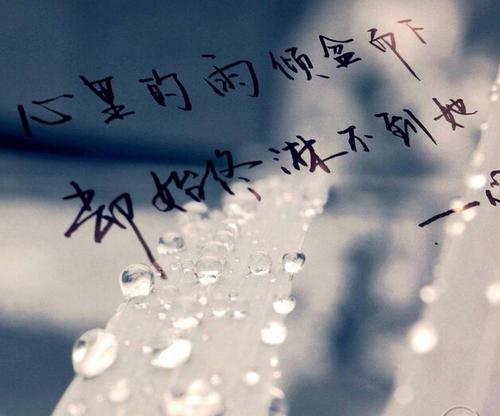 心里的雨倾盆而下
却始终淋不到她